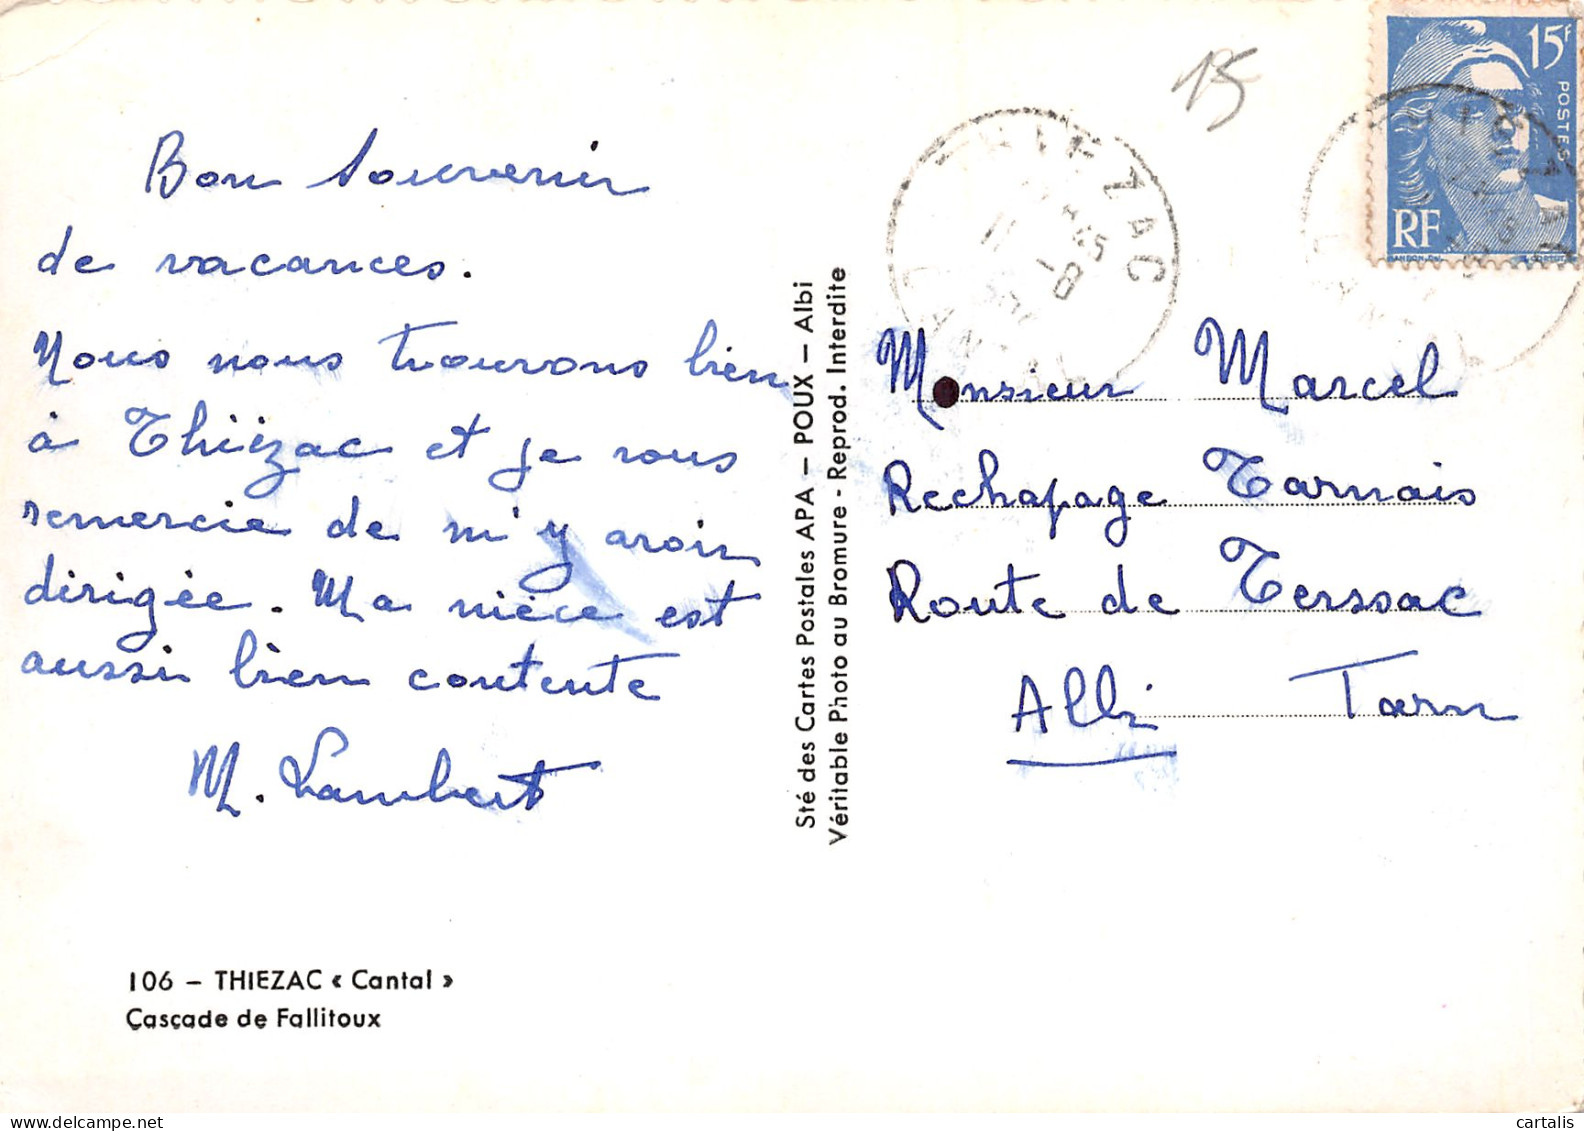 Bon souvenir
de vacances.
Nous nous trouvons bien
à Thiézac et je vous
remercie de m'y avoir
dirigée. Ma nièce est
aussi bien contente
M. Lambert
106 - THIEZAC « Cantal »
Cascade de Fallitoux
Sté des Cartes Postales APA - POUX - Albi
Véritable Photo au Bromure - Reprod. Interdite
15
15F
POSTES
RF
THIEZAC
CANTAL
Monsieur Marcel
Rechapage Tarnais
Route de Terssac
Albi Tarn
cartalis